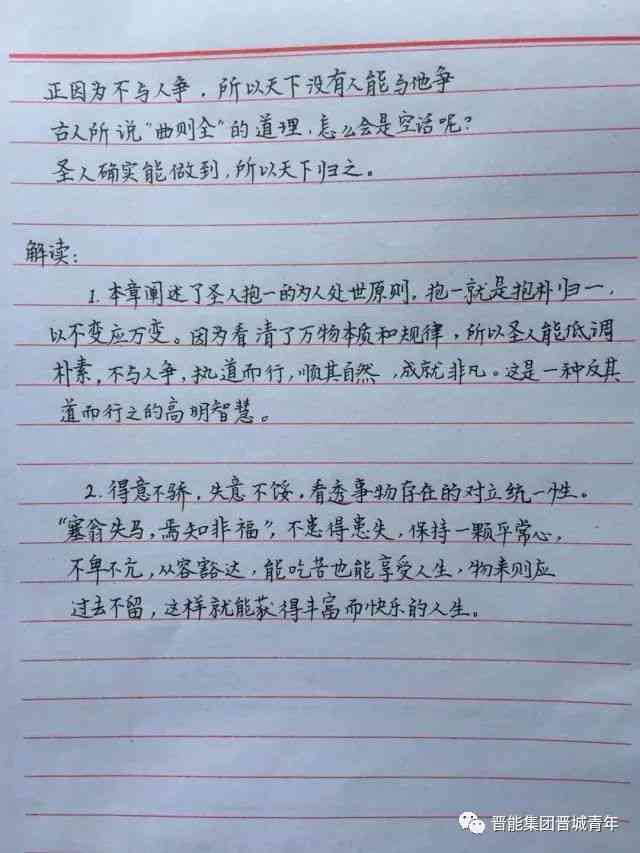 正因为不与人争，所以天下没有人能与他争
古人所说“曲则全”的道理，怎么会是空话呢？
圣人确实能做到，所以天下归之。
解读：
1. 本章阐述了圣人抱一的为人处世原则。抱一就是抱朴归一，
以不变应万变。因为看清了万物本质和规律，所以圣人能低调
朴素，不与人争，执道而行，顺其自然，成就非凡。这是一种反其
道而行之的高明智慧。
2. 得意不骄，失意不馁，看透事物存在的对立统一性。
“塞翁失马，焉知非福”，不患得患失，保持一颗平常心，
不卑不亢，从容豁达，能吃苦也能享受人生，物来则应
过去不留，这样就能获得丰富而快乐的人生。
晋能集团晋城青年